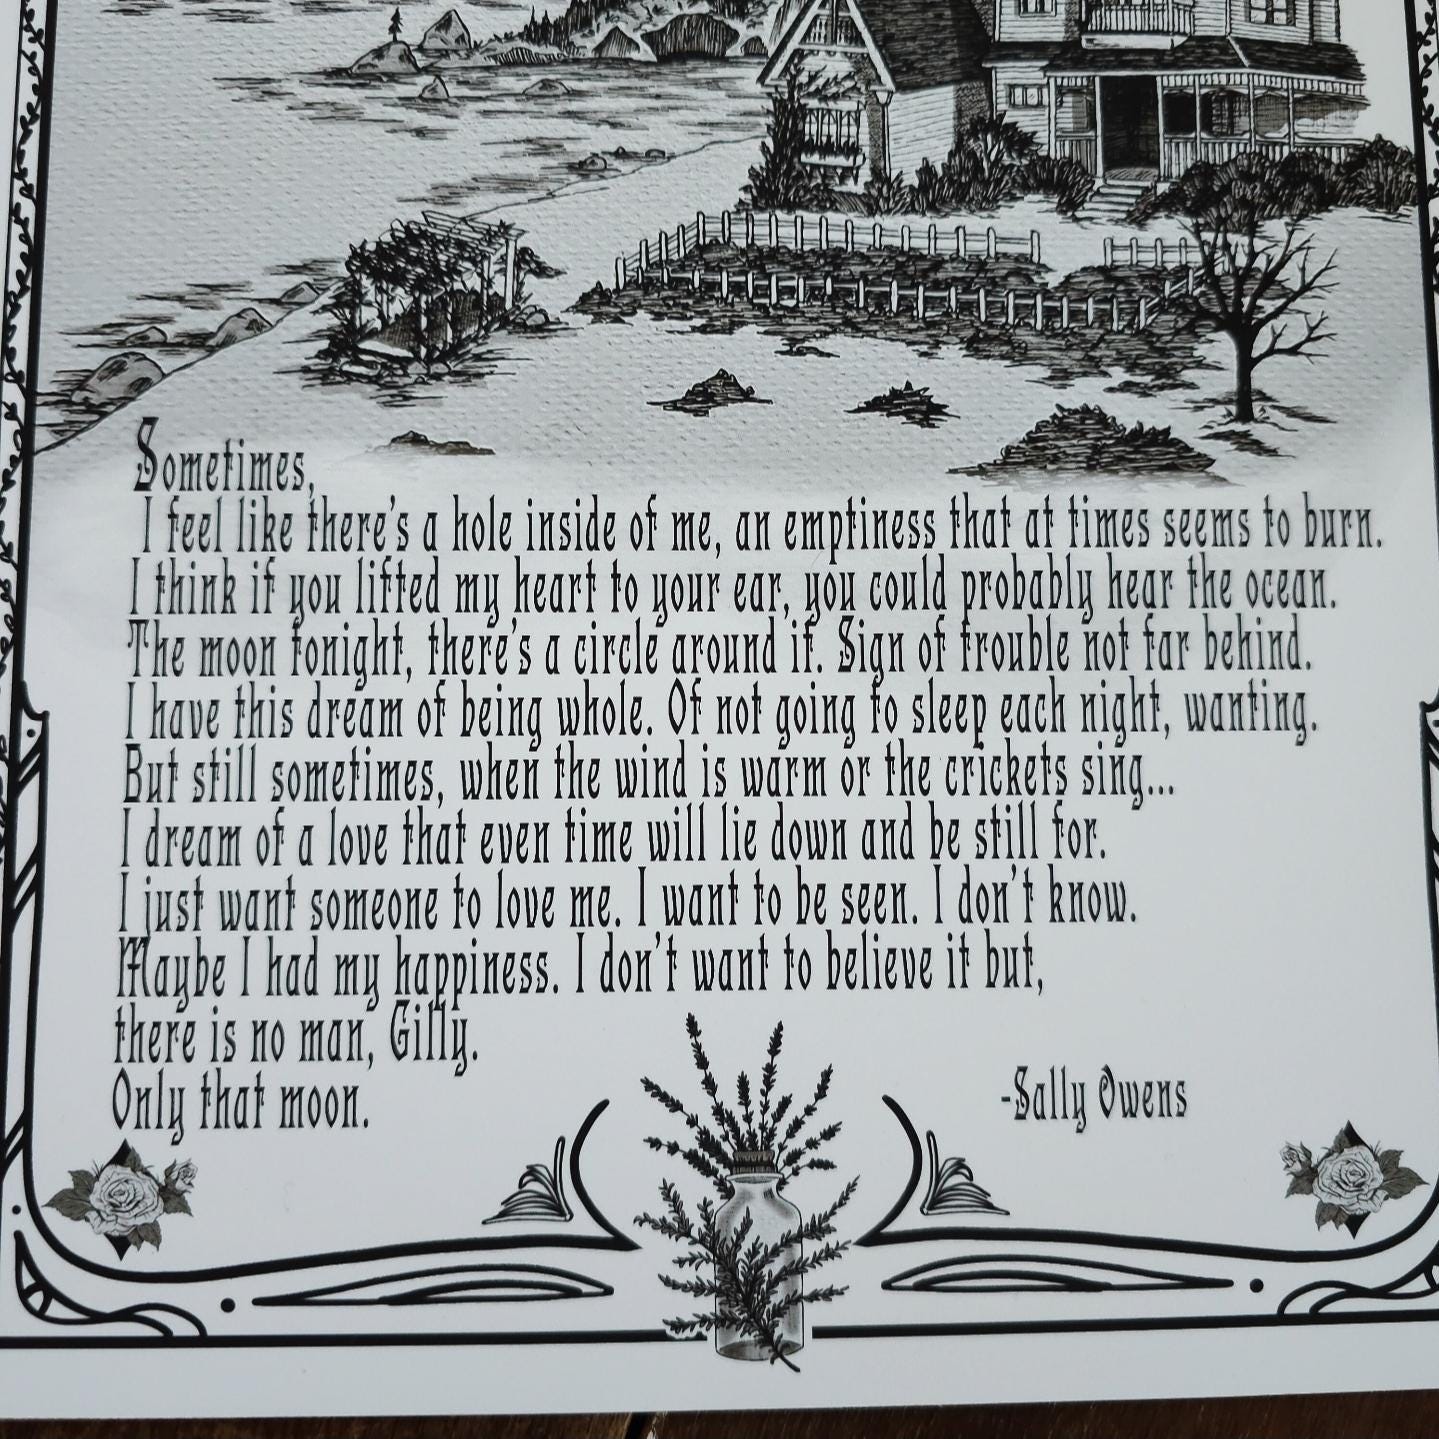 Sometimes,
I feel like there's a hole inside of me, an emptiness that at times seems to burn.
I think if you lifted my heart to your ear, you could probably hear the ocean.
The moon tonight, there's a circle around it. Sign of trouble not far behind.
I have this dream of being whole. Of not going to sleep each night, wanting.
But still sometimes, when the wind is warm or the crickets sing...
I dream of a love that even time will lie down and be still for.
I just want someone to love me. I want to be seen. I don't know.
Maybe I had my happiness. I don't want to believe it but,
there is no man, Gilly.
Only that moon.
-Sally Owens